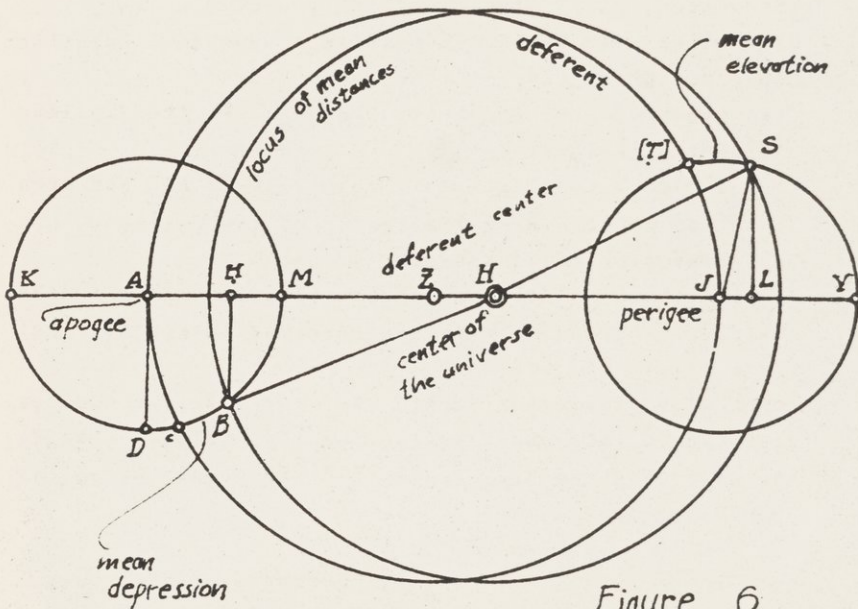 locus of mean
distances
deferent
mean
elevation
[Ṭ]
S
K
A
Ḥ
M
deferent center
Z
H
J
L
Y
apogee
center of
the universe
perigee
D
c
B
mean
depression
Figure 6